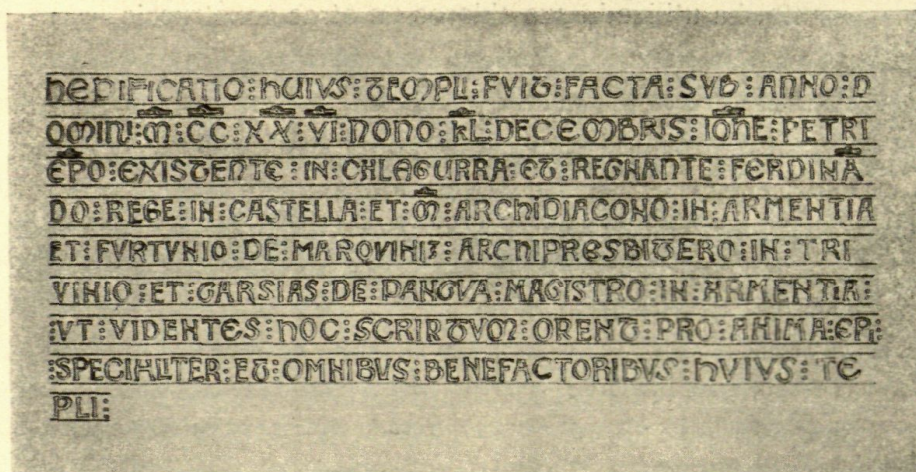 hEDIFICATIO : hUIVS : TEMPLI : FVIT : FACTA : SVB : ANNO : D
OMINI : M : CC : XX : VI : NONO : KL : DECEMBRIS : IOhE : PETRI
EPO : EXISTENTE : IN : CHLAGURRA : ET : REGNANTE : FERDINA
DO : REGE : IN : CASTELLA : ET : M : ARCHIDIACONO : IN : ARMENTIA
ET : FVRTVNIO : DE : MARQVINIZ : ARCHIPRESBITERO : IN : TRI
VINIO : ET : GARSIAS : DE : PANGVA : MAGISTRO : IN : ARMENTIA :
: VT : VIDENTES : hOC : SCRIRTVM : ORENT : PRO : ANIMA : EPI :
: SPECIALITER : ET : OMNIBVS : BENEFACTORIBVS : hVIVS : TE
PLI :